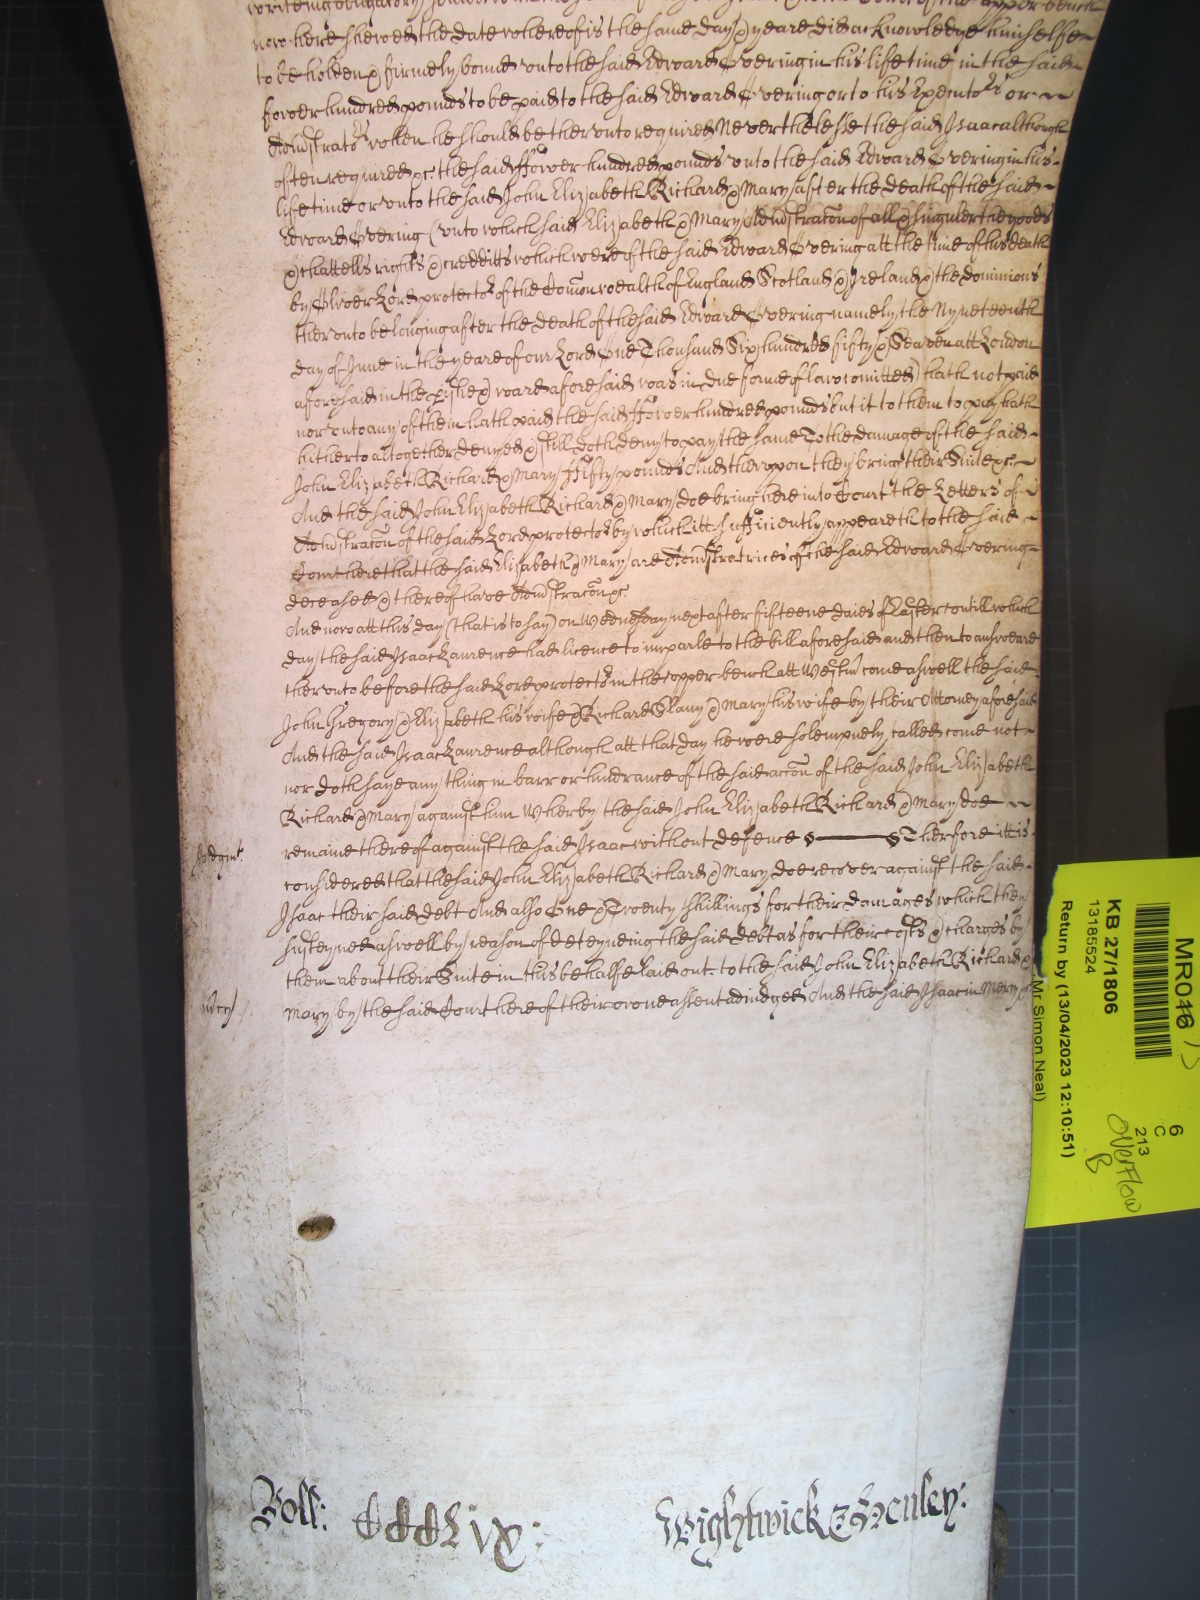 now here shewed the date whereof is the same day & yeare did acknowledge himselfe
to be holden & firmely bound unto the said Edward Overing in his life time in the said
fower hundred pounds to be paid to the said Edward Overing or to his Exeutors or
Admistrators when he should be therunto required Neverthelesse the said Isaac although
often required &c the said ffower hundred pounds unto the said Edward Overing in his
life time or unto the said John Elizabeth Richard & Mary after the death of the said
Edward Overing (unto which said Elizabeth & Mary Admistracon of all & singuler the goods
& chattells rights & creditts which were of the said Edward Overing att the time of his death
by Oliver Lord protector of the Comonwealth of England Scotland & Ireland & the dominions
therunto belonging after the death of the said Edward Overing namely the Nyneteenth
day of June in the yeare of our Lord One Thousand Six hundred fifty & Seaven att London
aforesaid in the pishe & ward aforesaid was in due forme of law comitted) hath not paid
nor unto any of them hath paid the said ffower hundred pounds but it to them to pay hath
hitherto altogether denyed & still doth deny to pay the same To the damage of the said
John Elizabeth Richard & Mary ffifty pounds And therupon they bring their Suite &c
And the said John Elizabeth Richard & Mary doe bring here into Court the Letters of
Admistracon of the said Lord protector by which itt sufficiently appeareth to the said
Court here that the said Elizabeth & Mary are Admistratrices of the said Edward Overing
deceased & thereof have Admistracon &c
And now att this day (that is to say) on Wednesday next after fifteene daies of Easter untill which
day the said Isaac Laurence had licence to imparle to the bill aforesaid and then to answeare
therunto before the said Lord protector in the upper bench att Westm come aswell the said
John Gregory & Elizabeth his wife & Richard Slany & Mary his wife by their Attorney aforesaid
And the said Isaac Laurence although att that day he were solempnely called come not
nor doth saye any thing in barr or hindrance of the said accon of the said John Elizabeth
Richard & Mary against him Wherby the said John Elizabeth Richard & Mary doe
Judgmt remaine thereof against the said Isaac without defence Therfore itt is
considered that the said John Elizabeth Richard & Mary doe recover against the said
Isaac their said debt And also One & Twenty shillings for their damages which they
susteyned aswell by reason of deteyneing the said debt as for their costs & charges by
them about their Suite in this behalfe laid out to the said John Elizabeth Richard &
Mercy Mary by the said Court here of their owne assent adiudged And the said Isaac in Mercy &c
Roll: CCCCLIX:
Wightwick & Henley:
MR046
KB 27/1806
13185524
Return by (13/04/2023 12:10:51)
Mr Simon Neal)
6
C
213
Overflow
B